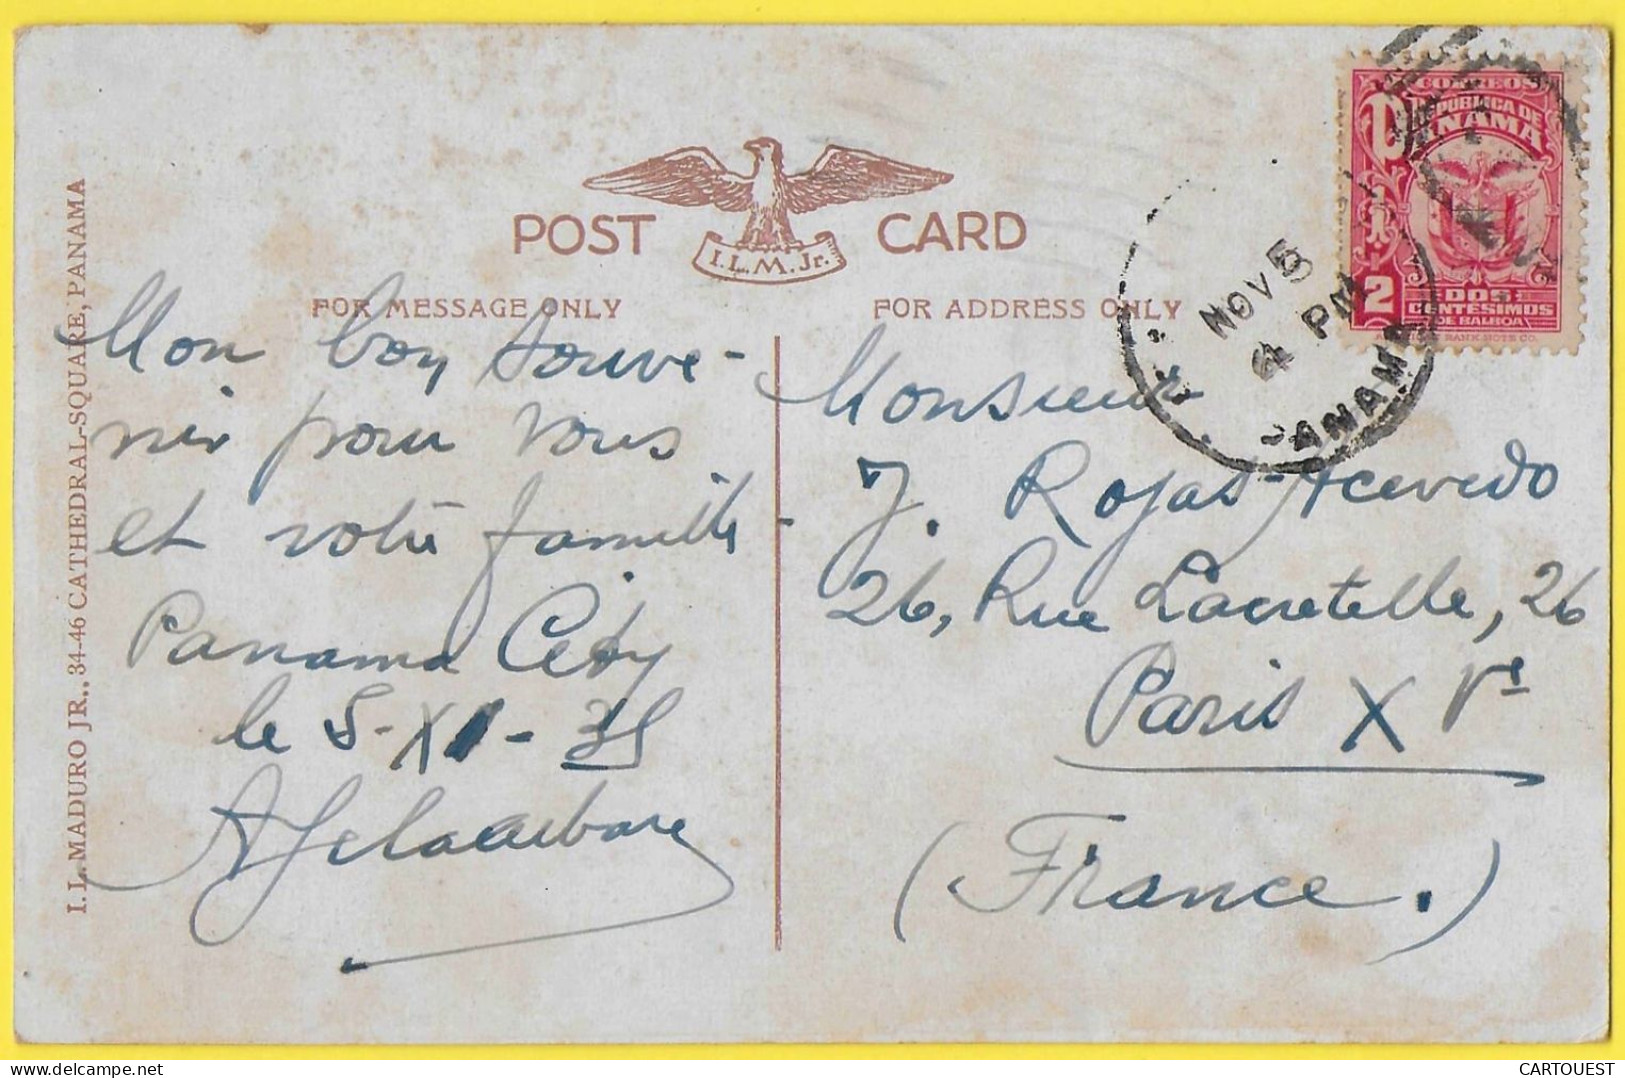 POST CARD
I.L.M.Jr.
FOR MESSAGE ONLY
FOR ADDRESS ONLY
I. L. MADURO JR., 34-46 CATHEDRAL-SQUARE, PANAMA
Mon bon souve-
nir pour vous
et votre famille-
Panama City
le 5-XI-35
Monsieur
J. Rojas-Acevedo
26, Rue Lacretelle, 26
Paris XVe
(France.)
CORREOS
REPÚBLICA DE
PANAMA
2
DOS
CENTESIMOS
DE BALBOA
AMERICAN BANK NOTE CO.
NOV 5
4 PM
PANAMA
CARTOUEST